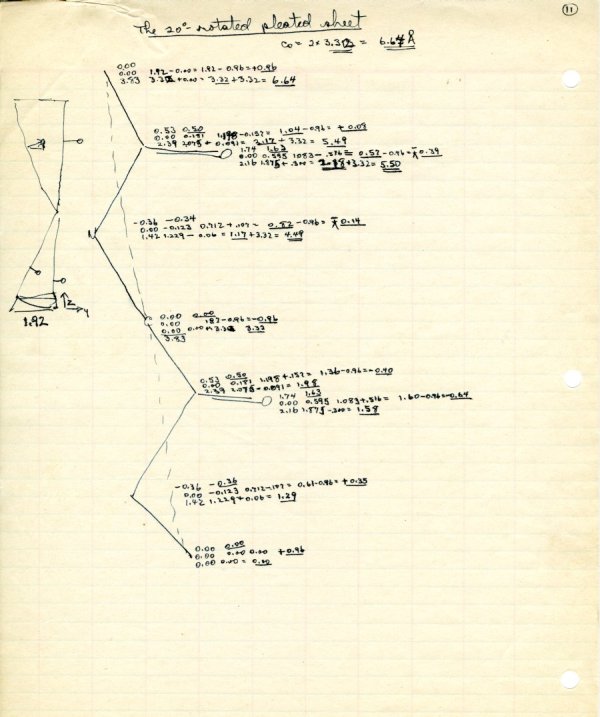 11
The 20°-rotated pleated sheet
c₀ = 2 x 3.32 = 6.64 Å
0.00
0.00 1.92 - 0.00 = 1.92 - 0.96 = +0.96
3.83 3.32 + 0.00 = 3.32 + 3.32 = 6.64
0.53 0.50
0.00 0.181 1.198 - 0.157 = 1.04 - 0.96 = + 0.08
2.39 2.075 + 0.091 = 2.17 + 3.32 = 5.49
1.74 1.63
0.00 0.595 1.083 - .516 = 0.57 - 0.96 = - 0.39
2.16 1.875 + .300 = 2.18 + 3.32 = 5.50
-0.36 -0.34
0.00 -0.123 0.712 + .107 = 0.82 - 0.96 = - 0.14
1.42 1.229 - 0.06 = 1.17 + 3.32 = 4.49
N
0.00 0.00
0.00 .182 - 0.96 = -0.96
0.00 0.00 + 3.32 3.32
3.83
z
y
1.92
0.53 0.50
0.00 0.181 1.198 + .157 = 1.36 - 0.96 = -0.40
2.39 2.075 - 0.091 = 1.98
1.74 1.63
0.00 0.595 1.083 + .516 = 1.60 - 0.96 = -0.64
2.16 1.875 - .300 = 1.58
-0.36 -0.36
0.00 -0.123 0.712 - .107 = 0.61 - 0.96 = +0.35
1.42 1.229 + 0.06 = 1.29
0.00 0.00
0.00 0.00 0.00 +0.96
0.00 0.00 = 0.00